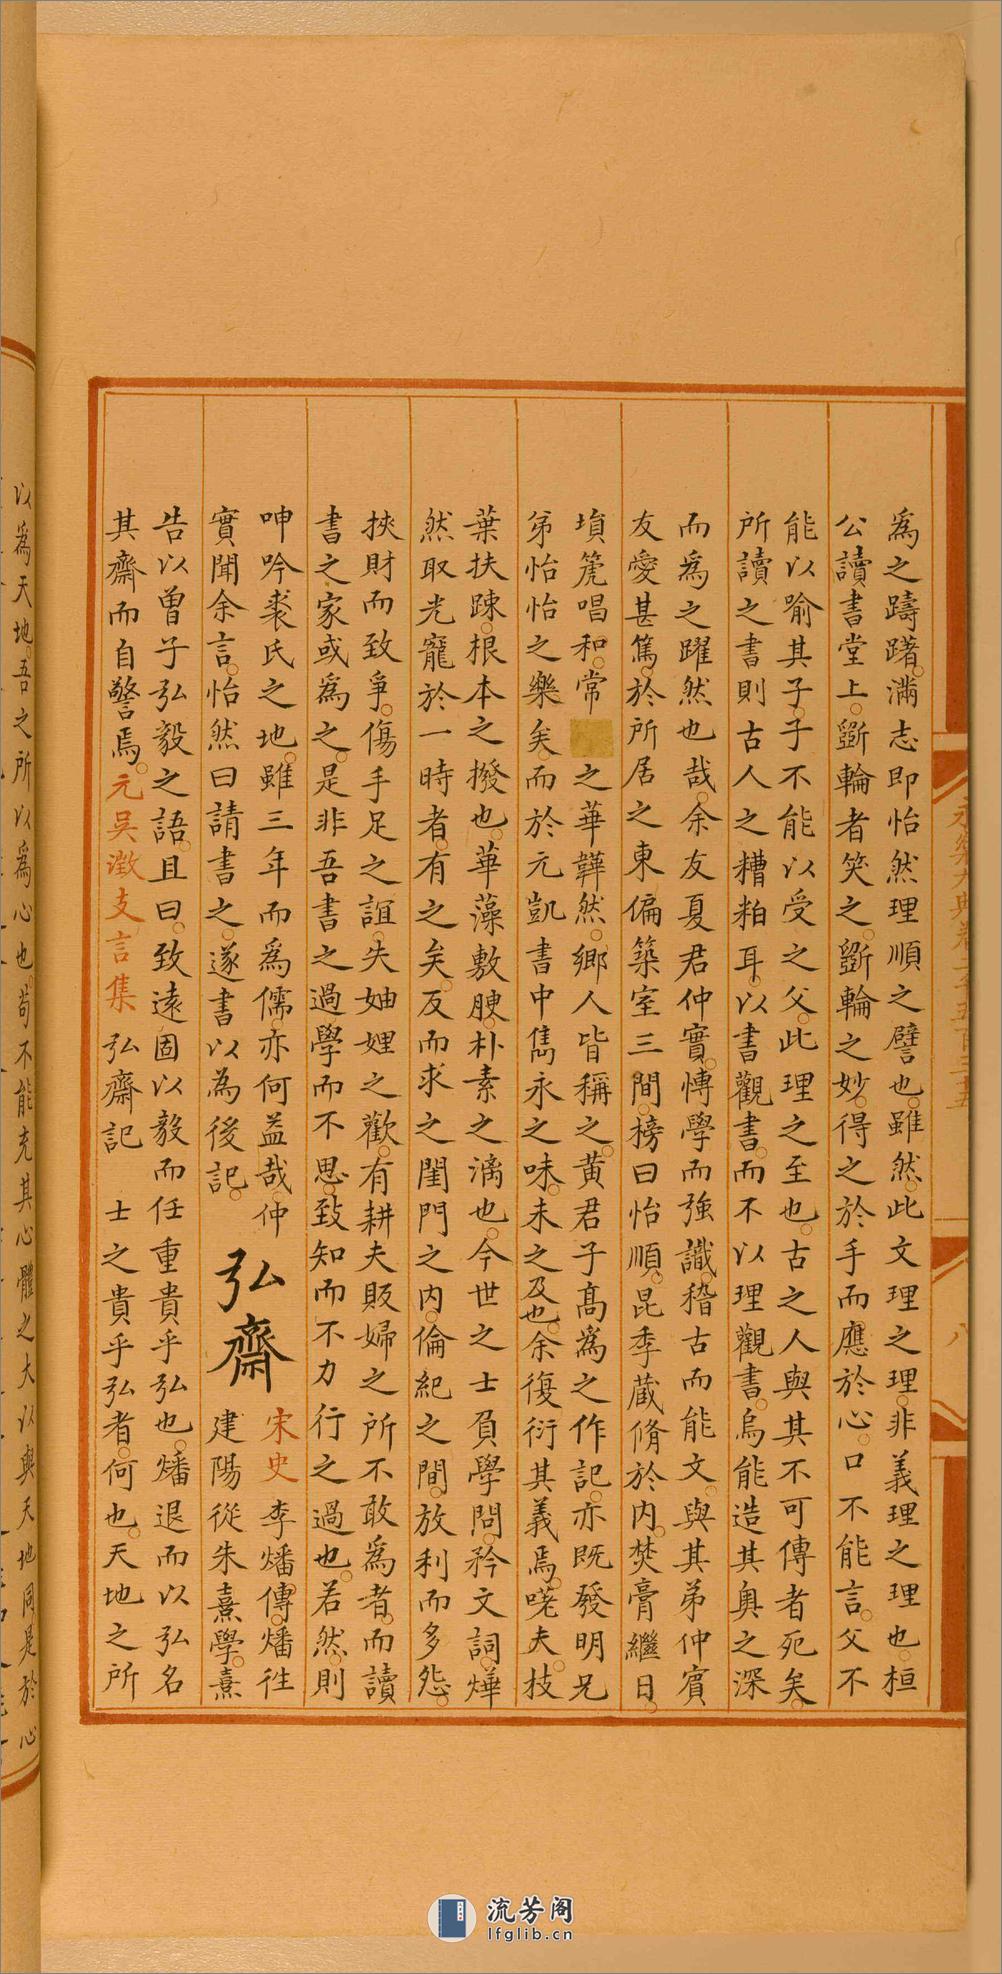 為之躊躇滿志即怡然理順之譬也雖然此文理之理非義理之理也桓
公讀書堂上斵輪者笑之斵輪之妙得之於手而應於心口不能言父不
能以喻其子子不能以受之父此理之至也古之人與其不可傳者死矣
所讀之書則古人之糟粕耳以書觀書而不以理觀書烏能造其奧之深
而為之躍然也哉余友夏君仲實慱學而強識稽古而能文與其弟仲賓
友愛甚篤於所居之東偏築室三間榜曰怡順昆季藏脩於內焚膏繼日
塤箎唱和常之華韡然鄉人皆稱之黃君子高為之作記亦既發明兄
弟怡怡之樂矣而於元凱書中雋永之味未之及也余復衍其義焉嘵夫枝
葉扶踈根本之撥也華藻敷腴朴素之漓也今世之士負學問矜文詞燁
然取光寵於一時者有之矣反而求之閨門之內倫紀之間放利而多怨
挾財而致爭傷手足之誼失妯娌之歡有耕夫販婦之所不敢為者而讀
書之家或為之是非吾書之過學而不思致知而不力行之過也若然則
呻吟裘氏之地雖三年而為儒亦何益哉仲
實聞余言怡然曰請書之遂書以為後記
弘齋
宋史李燔傳燔徃
建陽從朱熹學熹
告以曾子弘毅之語且曰致遠固以毅而任重貴乎弘也燔退而以弘名
其齋而自警焉元吳澂支言集弘齋記 士之貴乎弘者何也天地之所
以為天地吾之所以為心也苟不能充其心體之大以與天地同是於心
永樂大典卷二千五百三十五
八
流芳阁
lfglib.cn